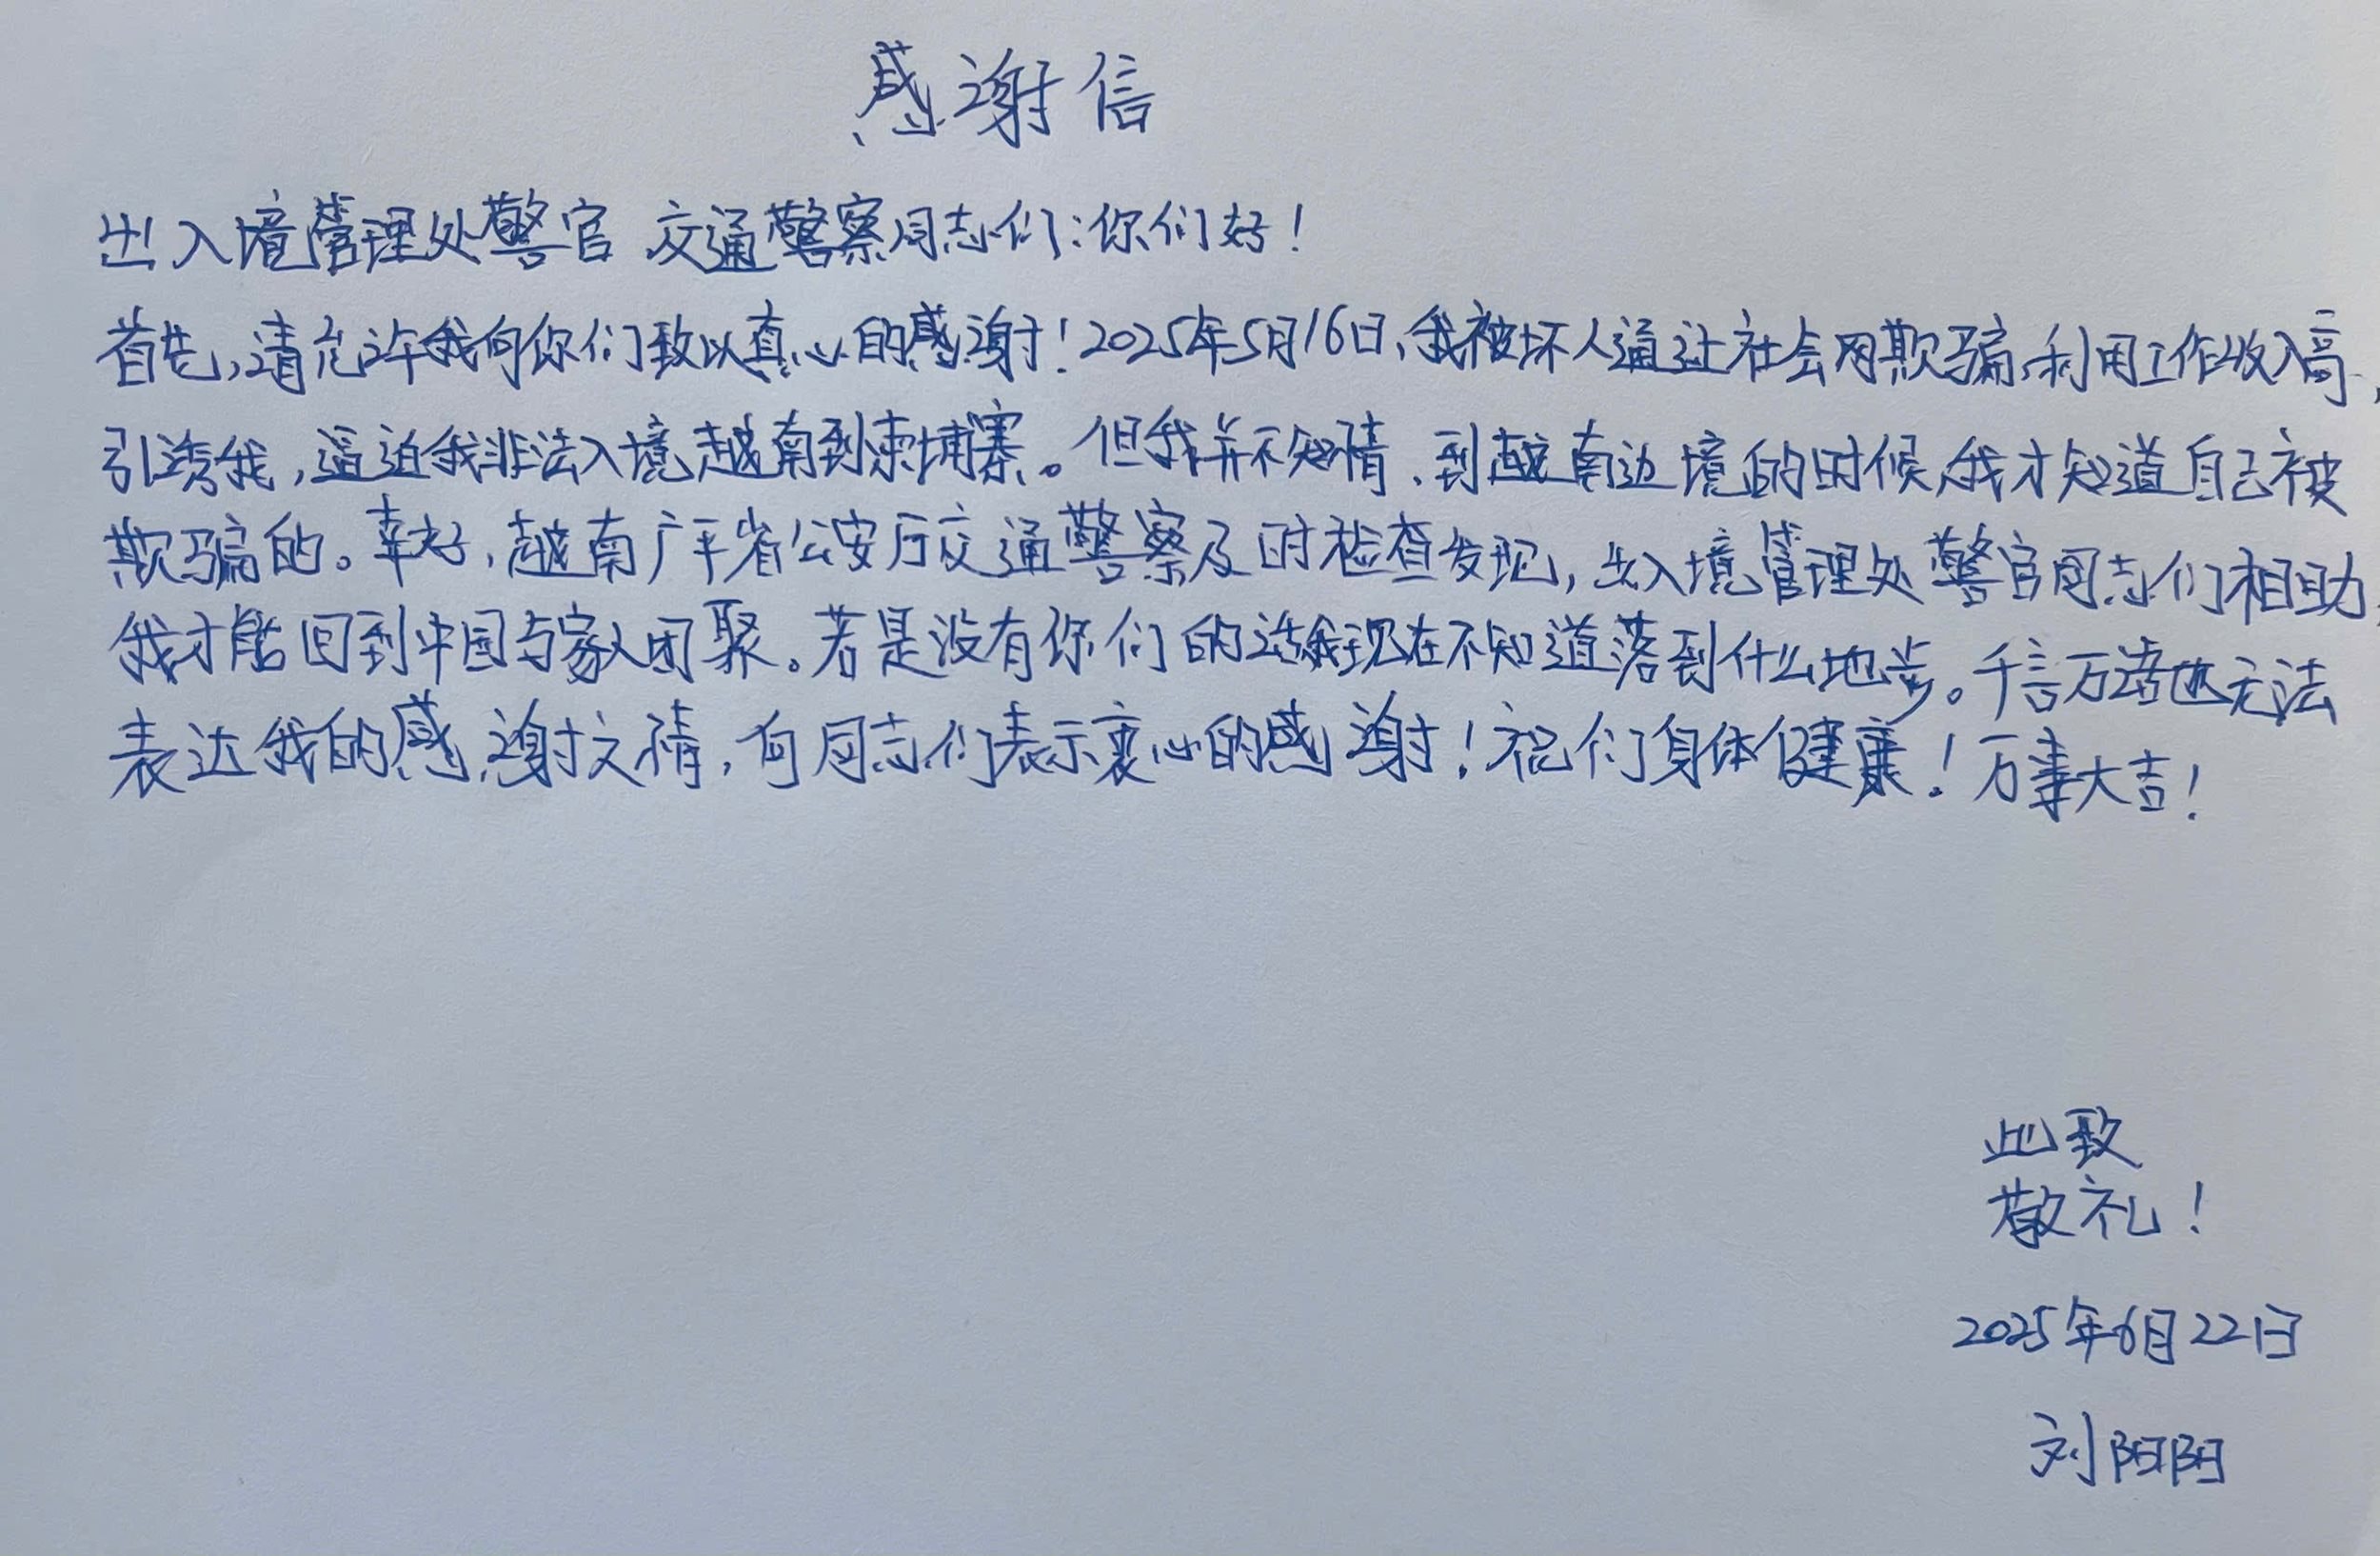 感谢信
出入境管理处警官 交通警察同志们:你们好!
首先,请允许我向你们致以真心的感谢!2025年5月16日,我被坏人通过社会网欺骗,利用工作收入高,
引诱我,逼迫我非法入境越南到柬埔寨。但我并不知情,到越南边境的时候,我才知道自己被
欺骗的。幸好,越南广平省公安厅交通警察及时检查发现,出入境管理处警官同志们相助,
我才能回到中国与家人团聚。若是没有你们的话我现在不知道落到什么地步。千言万语也无法
表达我的感谢之情,向同志们表示衷心的感谢!祝们身体健康!万事大吉!
此致
敬礼!
2025年6月22日
刘阳阳